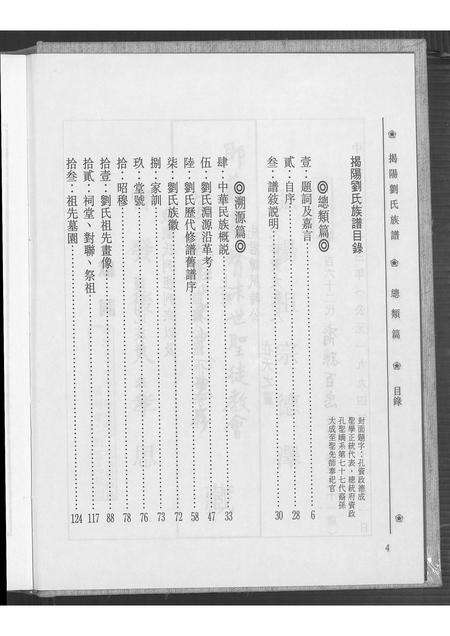 揭陽劉氏族譜 總類篇 目錄
揭陽劉氏族譜目錄
封面題字：孔資政德成
聖學正統代表，總統府資政
孔聖嫡系第七十七代裔孫
大成至聖先師奉祀官
◎總類篇◎
壹：題詞及嘉言 6
貳：自序 28
叁：譜敘説明 30
◎溯源篇◎
肆：中華民族概説 33
伍：劉氏淵源沿革考 47
陸：劉氏歷代修譜舊譜序 58
柒：劉氏族徽 72
捌：家訓 73
玖：堂號 76
拾：昭穆 78
拾壹：劉氏祖先畫像 88
拾貳：祠堂、對聯、祭祖 117
拾叁：祖先墓園 124
4